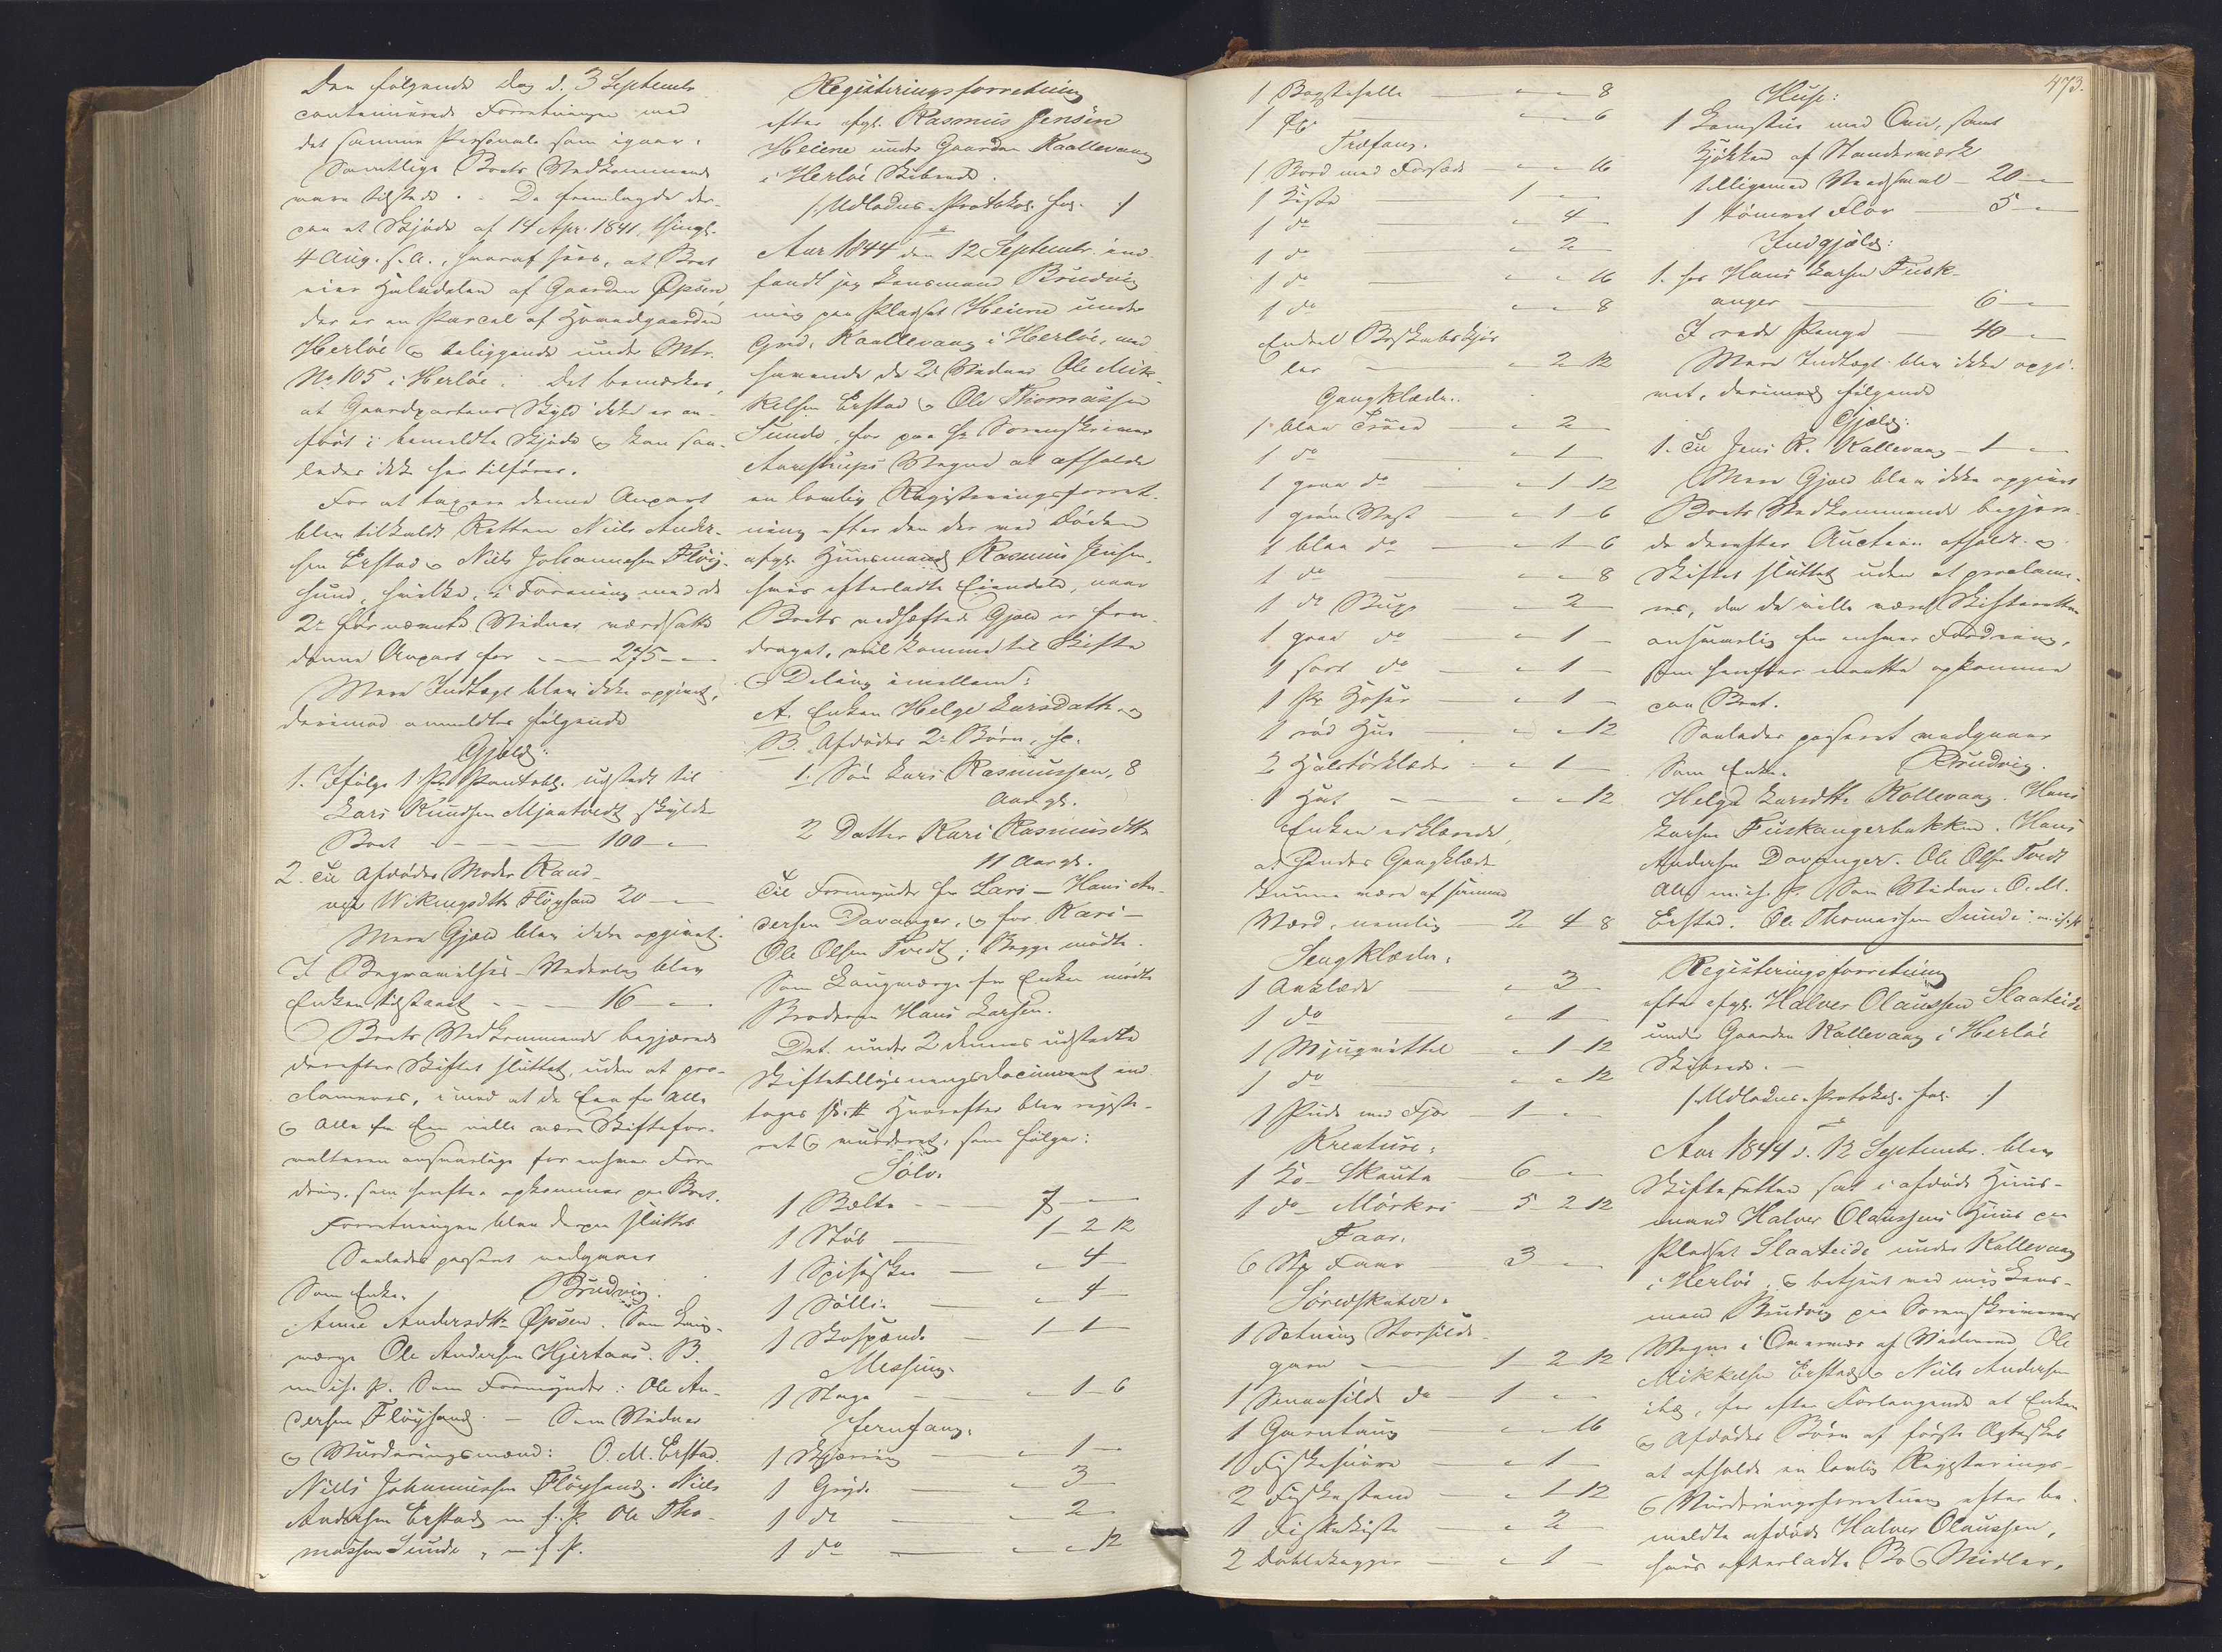 Den følgende Dag d. 3 Septembr
continuerede Forretningen med
det samme Personale som igaar.
Samtlige Boets Vedkommende
vare tilstede. De fremlagde der-
paa et Skjøde af 14 Apr. 1841, thingl.
4 Aug. s. A., hvoraf sees, at Boet
eier Halvdelen af Gaarden Øpsen
der er en Parcel af Hovedgaarden
Herløe & beliggende under Mtr.
No 105 i Herløe. Det bemærkes,
at Gaardpartens Skyld ikke er an-
ført i bemeldte Skjøde & kan saa-
ledes ikke her tilføres.
For at taxere denne Anpart
blev tilkaldt Retten Niels Ander-
sen Erstad & Niels Johannesen Fløy-
sund, hvilke, i Forening med de
2de førnævnte Vidner værdsatte
denne Anpart for 275
Mere Indtægt blev ikke opgivet,
derimod anmeldtes følgende
Gjæld:
1. Ifølge 1ste Pr. Pantobl. udstedt til
Lars Knudsen Mjaatvedt skylder
Boet 100
2. Til Afdødes Moder Rand-
vei Wikingsdtr Fløysand 20
Mere Gjæld blev ikke opgivet.
I Begravelses-Vederlag blev
Enken tilstaaet 16
Boets Vedkommende begjærede
derefter Skiftet sluttet, uden at pro-
clameres, imod at de Een for Alle
& Alle for Een ville være Skiftefor-
valteren ansvarlige for enhver For-
dring, som herefter opkommer paa Boet.
Forretningen blev derpaa sluttet
Saaledes passeret vedgaaer
Som Enke. Brudvig.
Anne Andersdtr Øpsen. Som Laug-
værge Ole Andersen Hjertaas. B.
m. ih. P. Som Formynder: Ole An-
dersen Fløysand. — Som Vidner
& Vurderingsmænd: O. M. Erstad.
Niels Johannessen Fløysand. Niels
Andersen Erstad m. f. P. Ole Tho-
massen Sunde, m. f. P.
Registeringsforretning
efter afgl. Rasmus Jensen
Heiene under Gaarden Kaallevaag
i Herløe Skibrede.
/: Udlodns-Protokol. fol. :/
Aar 1844 den 12 Septembr. ind-
fandt jeg Lensmand Brudvig
mig paa Pladset Heiene under
Grd. Kaallevaag i Herløe, med
havende de 2de Vidner Ole Mik-
kelsen Erstad & Ole Thomassen
Sunde, for paa Hr Sorenskriver
Aarstrups Vegne at afholde
en lovlig Registeringsforret-
ning efter den der ved Døden
afg. Huusmand Rasmus Jensen,
hvis efterladte Eiendele, naar
Boets vedhæftede Gjæld er fra-
draget, vil komme til Skifte
& Deling imellem:
A. Enken Helge Larsdatter &
B. Afdødes 2de Børn, sc.
1. Søn Lars Rasmussen, 8
Aar gl.
2 Datter Kari Rasmusdtr
11 Aar gl.
Til Formynder for Lars — Hans An-
dersen Davanger, & for Kari —
Ole Olsen Tvedt; Begge mødte.
Som Laugværge for Enken mødte
Broderen Hans Larsen.
Det under 2 dennes udstedte
Skiftetillysningsdocument ind-
tages Hvorefter blev registe-
ret & vurderet, som følger:
Sølv.
1 Bælte 7
1 Støb 1 2 12
1 Spiseskee 4
1 Sølli 4
1 Skospænde 1 1
Messing.
1 Stage 1 6
Jernfang.
1 Skjærring 1
1 Gryde 3
1 do 2
1 do 12
473.
1 Bagstehelle 8
1 Øxe 6
Træfang.
1 Bord med Forsæde 16
1 Kiste 1
1 do 4
1 do 2
1 do 16
1 do 8
Endeel Boskabskjør-
ler 2 12
Gangklæder.
1 blaa Trøie 2
1 do 1
1 graa do 1 12
1 grøn Vest 1 6
1 blaa do 1 6
1 do 8
1 do Buxe 2
1 graa do 1
1 sort do 1
1 Pr Hoser 1
1 rød Hue 12
2 Halstørklæder 1
1 Hat 12
Enken erklærede,
at hendes Gangklæder
kunne være af samme
Værd, nemlig 2 4 8
Sengklæder.
1 Aaklæde 3
1 do 1
1 Mjugvittel 1 12
1 do 12
1 Pude med Fjær 1
Kreature.
1 Ko — Skauta 6
1 do — Mørkei 5 2 12
Faar.
6 Stk Faar 3
Søredskaber.
1 Sætning Storsilde-
garn 1 2 12
1 Sommersilde do 1
1 Garntaug 16
1 Fiskesnøre 1
2 Fiskestand 1 12
1 Fiskekiste 2
2 Dublekagger 1
Huse:
1 Lemstue med Ovn, samt
Kjøkken af Standerværk
tilligemed 20
1 tømret Flor 5
Indgjæld:
1. hos Hans Larsen Fusk-
anger 6
I rede Penge 40
Mere Indtægt blev ikke opgi-
vet, derimod følgende
Gjæld:
1. Til Jens R. Kallevaag 1
Mere Gjæld blev ikke opgivet
Boets Vedkommende begjære-
de derefter Auction afholdt &
Skiftet sluttet uden at proclame-
res, da de ville være Skifteretten
ansvarlig for enhver Fordring,
som herefter maatte opkomme
paa Boet.
Saaledes passeret vedgaaer
Som Enke. Brudvig.
Helge Larsdtr Kallevaag. Hans
Larsen Fuskangerbakken. Hans
Andersen Davanger. Ole Olsen Tvedt
Alle m. ih. P. Som Vidner. O. M.
Erstad. Ole Thomassen Sunde m. ih. P.
Registeringsforretning
efter afgl. Halver Olaussen Slaateide
under Gaarden Kallevaag i Herløe
Skibrede. —
/: Udlodns-Protokol. fol. :/
Aar 1844 d. 12 Septembr. blev
Skifteretten sat i afdøde Huus-
mand Halver Olaussens Huus paa
Pladset Slaateide under Kallevaag
i Herløe, & betjent ved mig Lens-
mand Brudvig paa Sorenskriverens
Vegne i Overvær af Vidnerne Ole
Mikkelsen Erstad & Niels Andersen
ibd., for efter Forlangende af Enken
& Afdødes Børn af første Ægteskab
at afholde en lovlig Registerings-
& Vurderingsforretning efter be-
meldte afdøde Halver Olaussen,
hvis efterladte Bo & Midler,